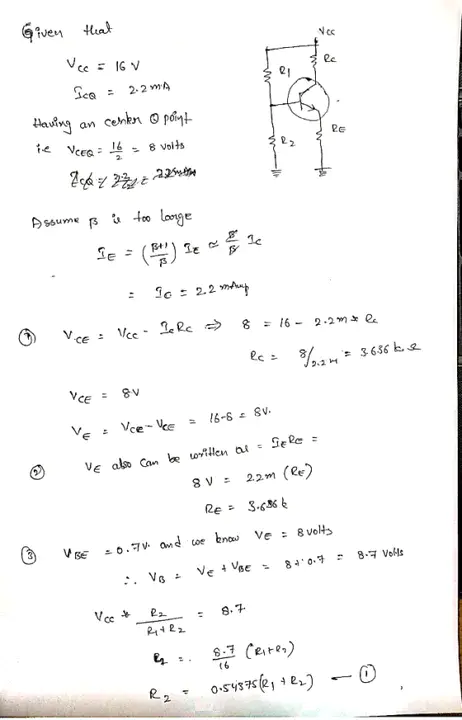 Given that
Vcc = 16 V
ICQ = 2.2 mA
Having an center Q point
i.e VCEQ = 16/2 = 8 volts
Vcc
Rc
R1
R2
RE
Assume β is too large
IE = (β+1/β) IE ≃ β/β Ic
= Ic = 2.2 mAmp
① VCE = Vcc - IcRc ⇒ 8 = 16 - 2.2m * Rc
Rc = 8/2.2m = 3.636 k Ω
VCE = 8V
VE = Vcc - VCE = 16-8 = 8V.
② VE also can be written as = IERE =
8V = 2.2m (RE)
RE = 3.636 k
③ VBE = 0.7V. and we know VE = 8 volts
∴ VB = VE + VBE = 8+0.7 = 8.7 volts
Vcc * R2/R1+R2 = 8.7
R2 = 8.7/16 (R1+R2)
R2 = 0.54375(R1+R2) — ①